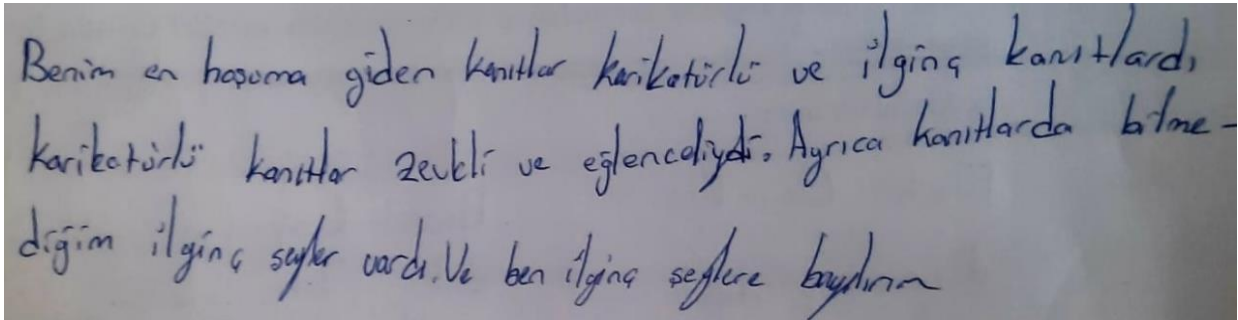 Benim en hoşuma giden kanıtlar karikatürlü ve ilginç kanıtlardı
karikatürlü kanıtlar zevkli ve eğlenceliydi. Ayrıca kanıtlarda bilme-
diğim ilginç şeyler vardı. Ve ben ilginç şeylere bayılırım